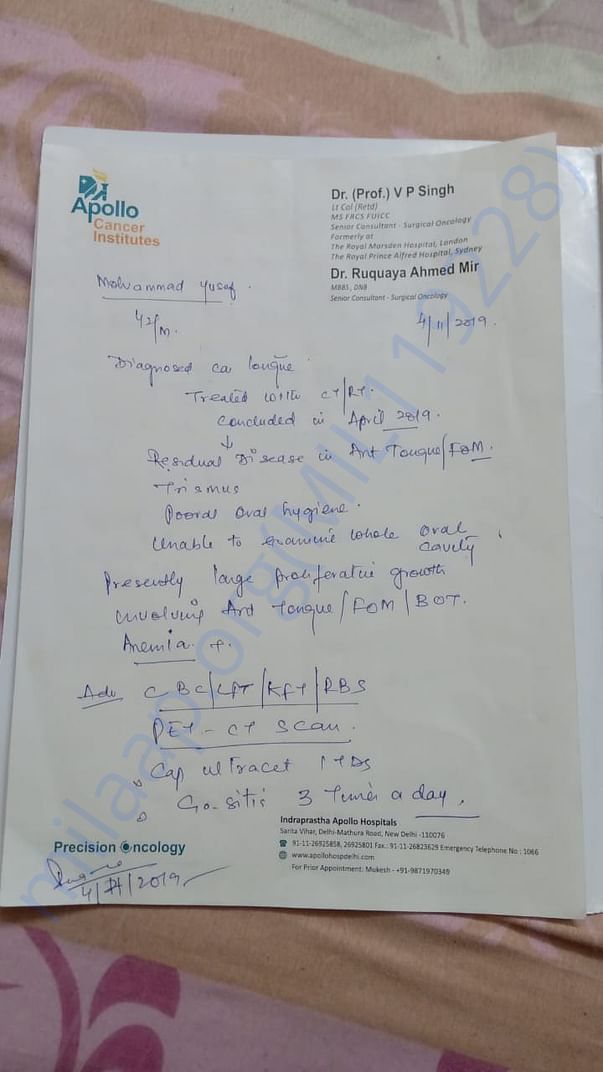 Apollo
Cancer
Institutes
Dr. (Prof.) V P Singh
Lt Col (Retd)
MS FRCS FUICC
Senior Consultant - Surgical Oncology
Formerly at
The Royal Marsden Hospital, London
The Royal Prince Alfred Hospital, Sydney
Dr. Ruquaya Ahmed Mir
MBBS, DNB
Senior Consultant - Surgical Oncology
Mohammad Yusaf.
42/M.
4/11/2019.
Diagnosed ca tongue.
Treated with CT/RT.
Concluded in April 2019.
↓
Residual Disease in Ant Tongue/FOM.
Trismus
Poord oral hygiene.
Unable to examine whole oral
cavity
Presently large proliferative growth
involving Ant tongue/FOM/BOT.
Anemia +.
Adv CBC/LFT/KFT/RBS
PET-CT Scan.
Cap ultracet 1 TDS
3 times a day.
Precision Oncology
4/11/2019
Indraprastha Apollo Hospitals
Sarita Vihar, Delhi-Mathura Road, New Delhi -110076
91-11-26925858, 26925801 Fax.: 91-11-26823629 Emergency Telephone No : 1066
www.apollohospdelhi.com
For Prior Appointment: Mukesh - +91-9871970349
milaap.org(MIL119228)